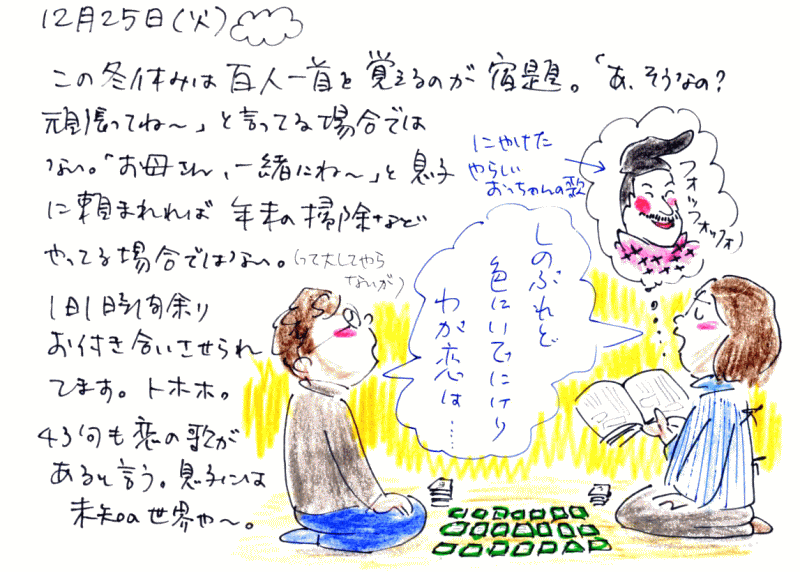 12月25日(火)
この冬休みは百人一首を覚えるのが宿題。「あ、そうなの?
頑張ってね〜」と言ってる場合では
ない。「お母さん、一緒にね〜」と息子
に頼まれれば年末の掃除など
やってる場合ではない。(って大してやら
ないが)
1日1時間余り
お付き合いさせられ
てます。トホホ。
43句も恋の歌が
あると言う。息子には
未知の世界や〜。
にやけた
やらしい
おっちゃんの歌
フォッフォッフォ
しのぶれど
色にいでにけり
わが恋は……